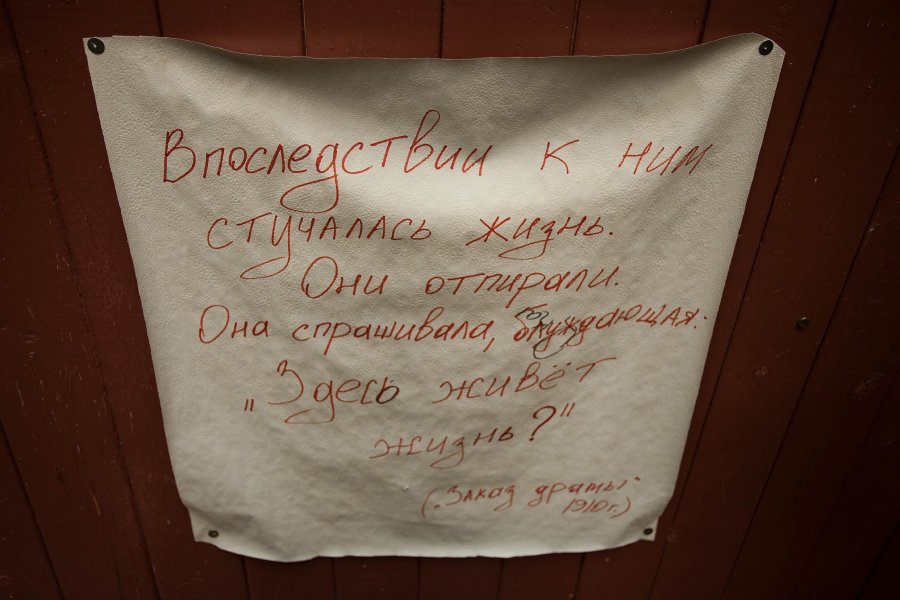 Впоследствии к ним
стучалась жизнь.
Они отпирали.
Она спрашивала, блуждающая:
„Здесь живёт
жизнь?"
(„Заказ драмы"
1910г.)